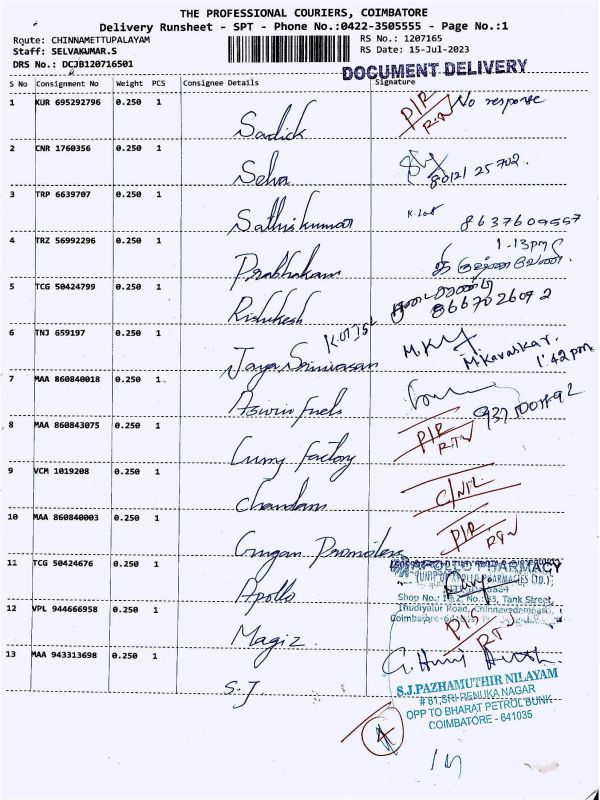 THE PROFESSIONAL COURIERS, COIMBATORE
Delivery Runsheet - SPT - Phone No.:0422-3505555 - Page No.:1
Route: CHINNAMETTUPALAYAM RS No.: 1207165
Staff: SELVAKUMAR.S RS Date: 15-Jul-2023
DRS No.: DCJB120716501 DOCUMENT DELIVERY
S No Consignment No Weight PCS Consignee Details Signature
1 KUR 695292796 0.250 1 Sadick P/R RTN No response
2 CNR 1760356 0.250 1 Selva 80121 25702.
3 TRP 6639707 0.250 1 Sathiskumar 8637609557
4 TRZ 56992296 0.250 1 Prabhakaran 1-13pm
5 TCG 50424799 0.250 1 Rishikesh 8667026092
6 TNJ 659197 0.250 1 Jaya Srinivasan M.Kavaskar. 1:42pm
7 MAA 860840018 0.250 1 Aswin fuels
8 MAA 860843075 0.250 1 Curry factory P/R RTN
9 VCM 1019208 0.250 1 Chandam C/NIL
10 MAA 860840003 0.250 1 Promoters P/R RTN
11 TCG 50424676 0.250 1 Apollo APOLLO PHARMACY
(UNIT OF APOLLO PHARMACIES LTD.)
Tank Street,
Thudiyalur Road,
12 VPL 944666958 0.250 1 Magiz
13 MAA 943313698 0.250 1 S.J
S.J.PAZHAMUTHIR NILAYAM
# 81, SRI RENUKA NAGAR
OPP TO BHARAT PETROL BUNK
COIMBATORE - 641035
4